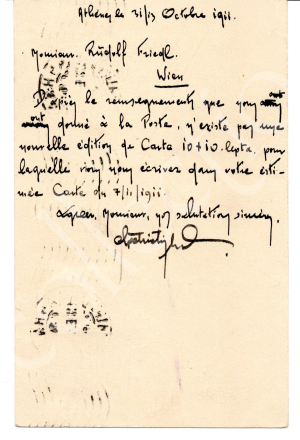 Athènes le 31/13 Octobre 1911.
Monsieur Rudolf Friedl.
Wien
D'après le renseignements que nous
ont donné à la Poste, n'existe pas une
nouvelle édition de Carte 10+10 lepta, pour
laquelle vous nous écrivez dans votre esti-
mée Carte du 7/11/1911.
Agréez, Monsieur, nos salutations sincères.